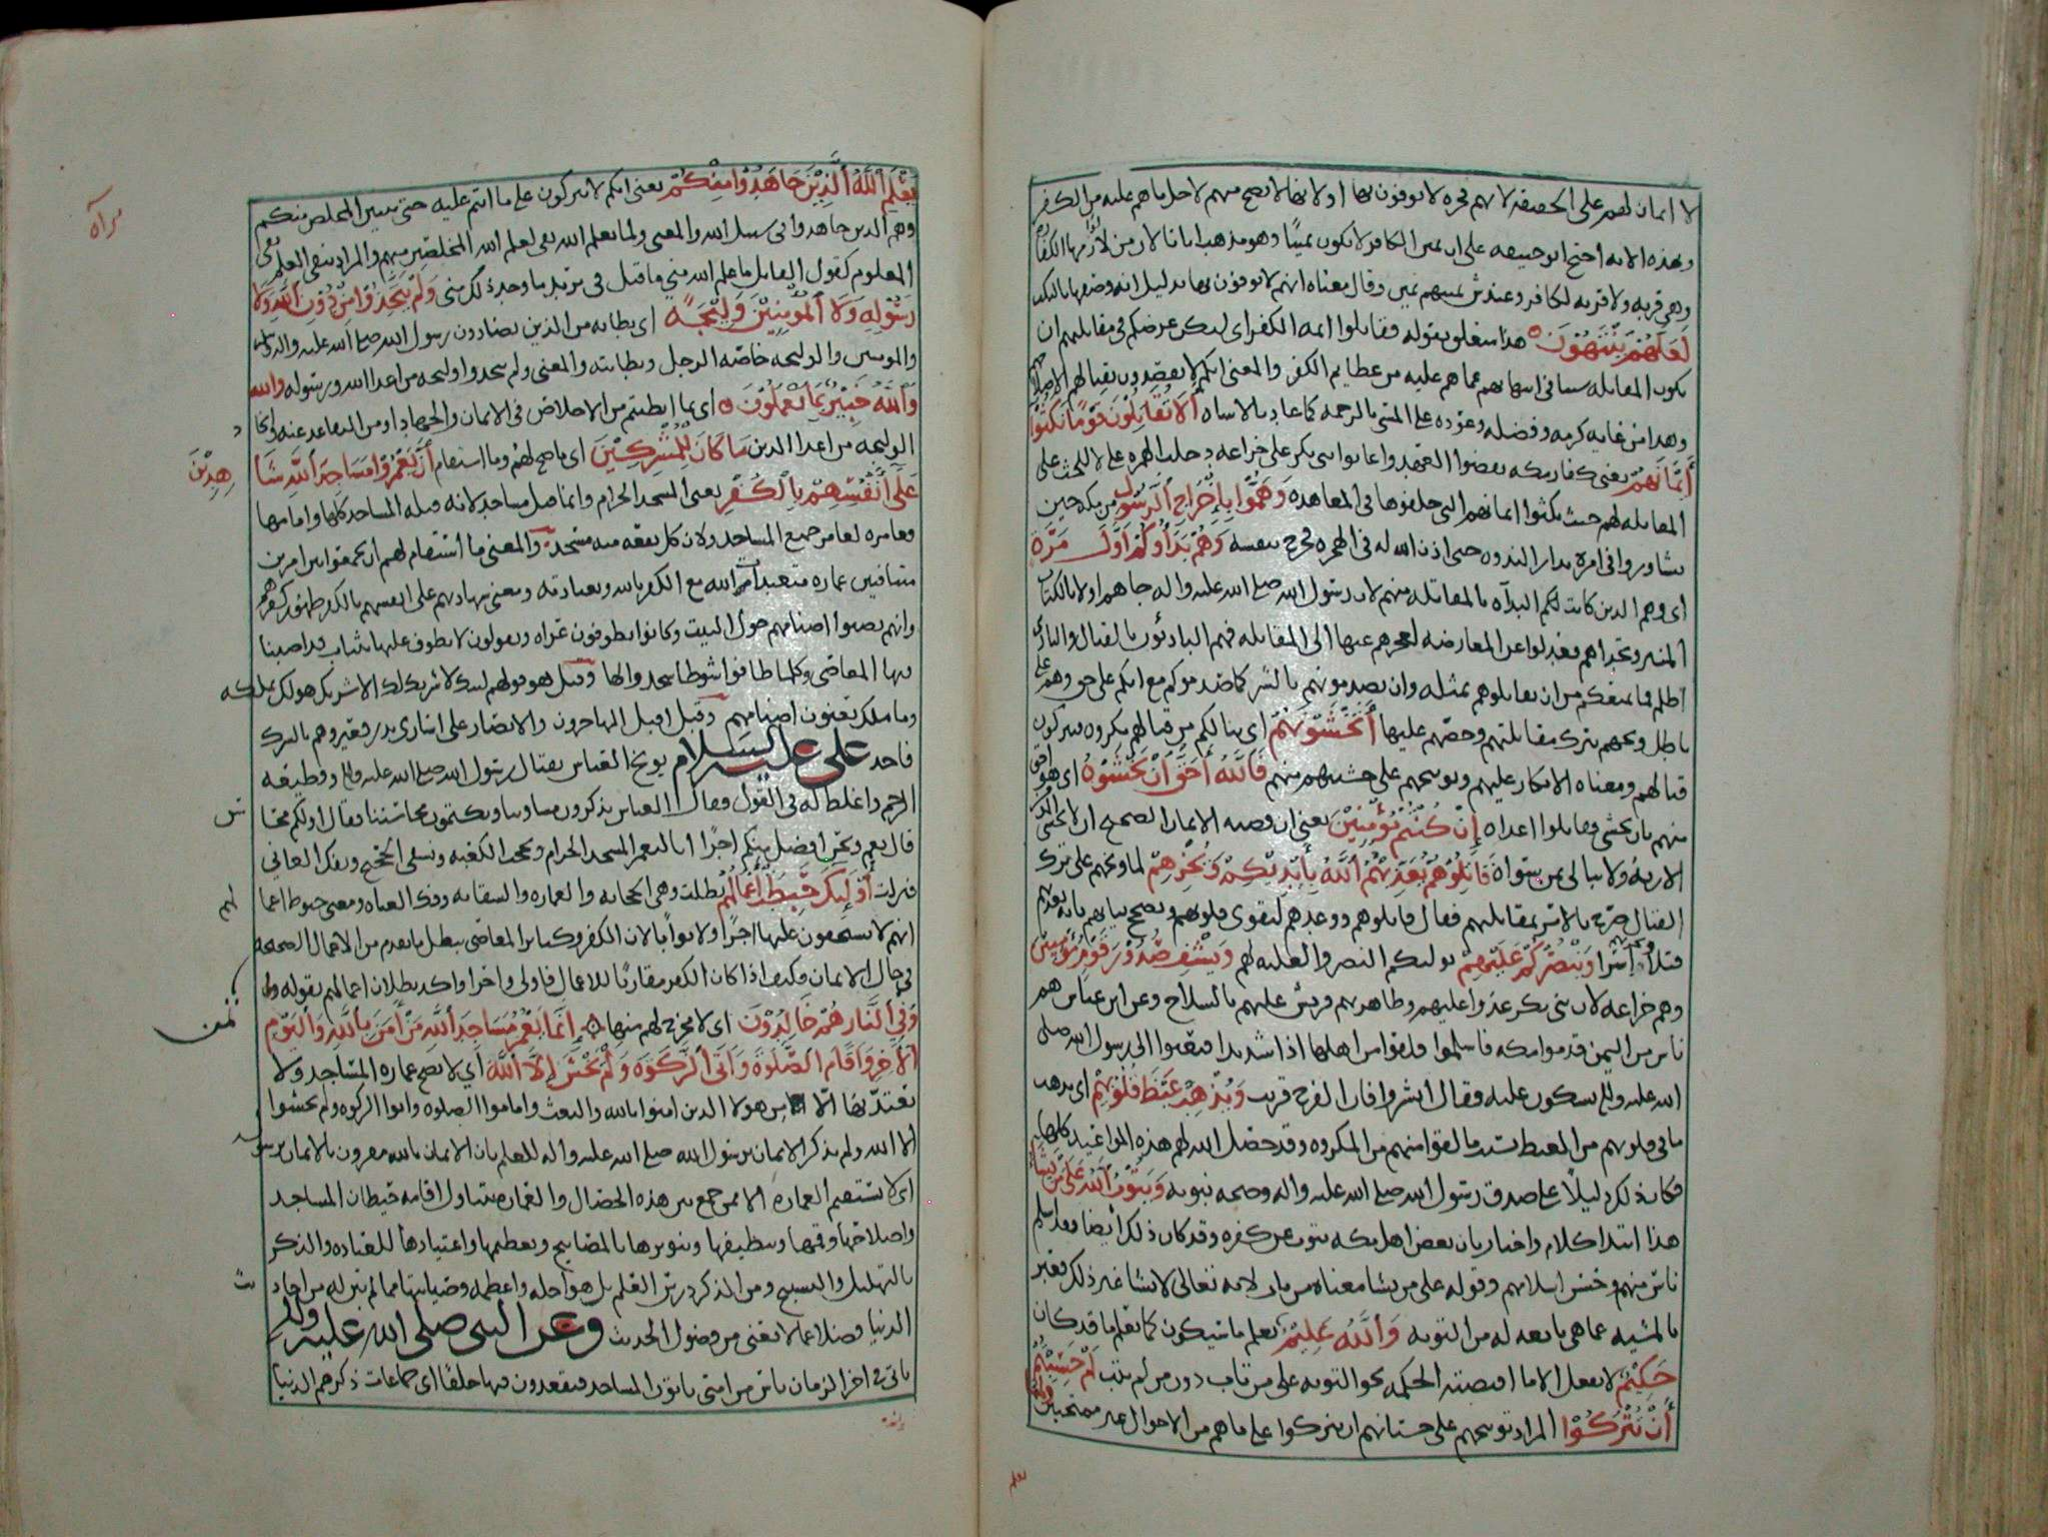 لا ايمان لهم على الحقيقه لانهم فجره لا يوفون بها او لانها لا تصح منهم لاجل ما هم عليه من الكفر
وبهذه الايه احتج ابو حنيفه على ان يمين الكافر لا يكون يمينًا وهو مذهب ابائنا لان من الكفارة
وهي قربه ولا قربه لكافر وعند ش يمينهم يمين وقال معناه انهم لا يوفون بها بدليل انه وصفها بالنكث
لَعَلَّهُمْ يَنْتَهُوْنَ هذا متعلق بقوله فقاتلوا ايمه الكفر اي ليكن غرضكم في مقاتلتهم ان
يكون المقاتله سببا في انتهائهم عما هم عليه من عظايم الكفر والمعنى انكم لا تقصدون بقتالهم الا
وهذا من غايه كرمه وفضله وعوده على المسي بالرحمه كلما عاد بالاساه أَلَا تُقَاتِلُوْنَ قَوْمًا نَكَثُوْا
أَيْمَانَهُمْ يعني كفار مكه نقضوا العهد واعانوا بني بكر على خزاعه دخلت الهمزه على لا للحث على
المقاتله لهم حيث نكثوا ايمانهم التي حلفوها في المعاهده وَهَمُّوْا بِإِخْرَاجِ الرَّسُوْلِ من مكه حين
تشاوروا في امره بدار الندوه حتى اذن الله له في الهجره فخرج بنفسه وَهُمْ بَدَأُوكُمْ أَوَّلَ مَرَّةٍ
اي وهم الذين كانت لهم البدآه بالمقاتله منهم لان رسول الله صلى الله عليه واله جاهم اولا بالكتاب
المنير وتحداهم فعدلوا عن المعارضه لعجزهم عنها الى المقاتله فهم البادئون بالقتال والبادي
اظلم فما يمنعكم من ان تقاتلوهم بمثله وان تصدموهم بالشر كما صدموكم مع انكم على حق وهم على
باطل وبخهم بترك مقاتلتهم وحضهم عليها أَتَخْشَوْنَهُمْ اي ينالكم من قتالهم مكروه فتتركون
قتالهم ومعناه الانكار عليهم وتوبيخهم على خشيتهم منهم فَاللَّهُ أَحَقُّ أَنْ تَخْشَوْهُ اي هو احق
منهم بان يخشى وقاتلوا اعداه إِنْ كُنْتُمْ مُؤْمِنِيْنَ يعني ان قضيه الايمان الصحيح ان لا يخشى
الا ربه ولا يبالي بمن سواه قَاتِلُوْهُمْ يُعَذِّبْهُمُ اللَّهُ بِأَيْدِيْكُمْ وَيُخْزِهِمْ لما وبخهم على ترك
القتال صرح بالامر بمقاتلتهم فقال قاتلوهم ووعدهم لتقوى قلوبهم وتصح نياتهم بانه يعذبهم
قتلا واسرا وَيَنْصُرْكُمْ عَلَيْهِمْ يوليكم النصر والغلبه لهم وَيَشْفِ صُدُوْرَ قَوْمٍ مُؤْمِنِيْنَ
وهم خزاعه لان بني بكر عدوا عليهم وظاهرتهم قريش عليهم بالسلاح وعن ابن عباس هم
ناس من اليمن قدموا مكه فاسلموا فلقوا من اهلها اذا شديدا فبعثوا الى رسول الله صلى
الله عليه واله يشكون عليه فقال ابشروا فان الفرج قريب وَيُذْهِبْ غَيْظَ قُلُوْبِهِمْ اي يذهب
ما في قلوبهم من الغيظ بسبب ما لقوا منهم من المكروه وقد حصل الله لهم هذه المواعيد كلها
فكان ذلك دليلًا على صدق رسول الله صلى الله عليه واله وصحه نبوته وَيَتُوْبُ اللَّهُ عَلَى مَنْ يَشَاءُ
هذا ابتدا كلام واخبار بان بعض اهل مكه يتوب عن كفره وقد كان ذلك ايضا فقد اسلم
ناس منهم وحسن اسلامهم وقوله على من يشا معناه من تاب لانه تعالى لا يشا غير ذلك فعبر
بالمشيه عما هي تابعه له من التوبه وَاللَّهُ عَلِيْمٌ يعلم ما سيكون كما يعلم ما قد كان
حَكِيْمٌ لا يفعل الا ما اقتضته الحكمه نحو التوبه على من تاب دون من لم يتب أَمْ حَسِبْتُمْ
أَنْ تُتْرَكُوْا المراد توبيخهم على حسبانهم ان يتركوا على ما هم من الاحوال غير ممتحنين وَلَمَّا
يعلم
يَعْلَمِ اللَّهُ الَّذِيْنَ جَاهَدُوْا مِنْكُمْ يعني انكم لا تتركون على ما انتم عليه حتى يتبين المخلص منكم
وهم الذين جاهدوا في سبيل الله والمعنى ولما يعلم الله بمعنى لم يعلم الله المخلصين منهم والمراد بنفي العلم نفي
المعلوم كقول القايل ما علم الله مني ما قيل في يريد ما وجد ذلك مني وَلَمْ يَتَّخِذُوْا مِنْ دُوْنِ اللَّهِ وَلَا
رَسُوْلِهِ وَلَا الْمُؤْمِنِيْنَ وَلِيْجَةً اي بطانه من الذين يضادون رسول الله صلى الله عليه واله
والمومنين والوليجه خاصه الرجل وبطانته والمعنى ولم يتخذوا وليجه من اعدا الله ورسوله والله
وَاللَّهُ خَبِيْرٌ بِمَا تَعْمَلُوْنَ اي بما ابطنتم من الاخلاص في الايمان والجهاد او من التقاعد عنه واتخاذ
الوليجه من اعدا الدين مَا كَانَ لِلْمُشْرِكِيْنَ اي ما صح لهم وما استقام أَنْ يَعْمُرُوْا مَسَاجِدَ اللَّهِ شَاهِدِيْنَ
عَلَى أَنْفُسِهِمْ بِالْكُفْرِ يعني المسجد الحرام وانما قيل مساجد لانه قبله المساجد كلها وامامها
وعامره كعامر جميع المساجد ولان كل بقعه منه مسجد والمعنى ما استقام لهم ان يجمعوا بين امرين
متنافيين عماره متعبدات الله مع الكفر بالله وبعبادته ومعنى شهادتهم على انفسهم بالكفر ظهور كفرهم
وانهم نصبوا اصنامهم حول البيت وكانوا يطوفون عراه ويقولون لا نطوف عليها بثياب قد اصبنا
بها المعاصي وكلما طافوا شوطا سجدوا لها وقيل هو قولهم لبيك لا شريك لك الا شريك هو لك تملكه
وما ملك يعنون اصنامهم وقيل اقبل المهاجرون والانصار على اسارى بدر فعيروهم بالشرك
فاخذ علي عليه السلام يوبخ العباس بقتال رسول الله صلى الله عليه واله وقطيعه
الرحم واغلظ له في القول فقال العباس يذكرون مساوينا ويكتمون محاسننا فقال اولكم محاسن
قال نعم ونحن افضل منكم اجرًا انا لنعمر المسجد الحرام ونحجب الكعبه ونسقي الحجيج ونفك العاني
فنزلت أُوْلَئِكَ حَبِطَتْ أَعْمَالُهُمْ بطلت وهي الحجابه والعماره والسقايه وفك العناه ومعنى حبوط اعمالهم
انهم لا يستحقون عليها اجرًا ولا ثوابا لان الكفر وكباير المعاصي يبطل ما تقدم من الاعمال الصحيحه
في حال الايمان فكيف اذا كان الكفر مقارنًا للاعمال فاولى واحرا واكد بطلان اعمالهم بقوله
وَفِي النَّارِ هُمْ خَالِدُوْنَ اي لا مخرج لهم منها إِنَّمَا يَعْمُرُ مَسَاجِدَ اللَّهِ مَنْ آمَنَ بِاللَّهِ وَالْيَوْمِ
الْآخِرِ وَأَقَامَ الصَّلَوةَ وَآتَى الزَّكَوةَ وَلَمْ يَخْشَ إِلَّا اللَّهَ اي لا تصح عماره المساجد ولا
يعتد بها الا من هولا الذين امنوا بالله والبعث واقاموا الصلوه واتوا الزكوه ولم يخشوا
الا الله ولم يذكر الايمان برسول الله صلى الله عليه واله للعلم بان الايمان بالله مقرون بالايمان برسوله
اي لا تستقيم العماره الا ممن جمع بين هذه الخصال والعماره تتناول اقامه حيطان المساجد
واصلاحها وقمها وتنظيفها وتنويرها بالمصابيح وتعظيمها واعتيادها للعباده والذكر
بالتهليل والتسبيح ومن الذكر درس العلم بل هو اجله واعظمه وصيانتها مما لم تبن له من احاديث
الدنيا فضلا عما لا يعني من فضول الحديث وعن النبي صلى الله عليه واله
ياتي في اخر الزمان ناس من امتي ياتون المساجد فيقعدون فيها حلقًا اي جماعات ذكرهم الدنيا